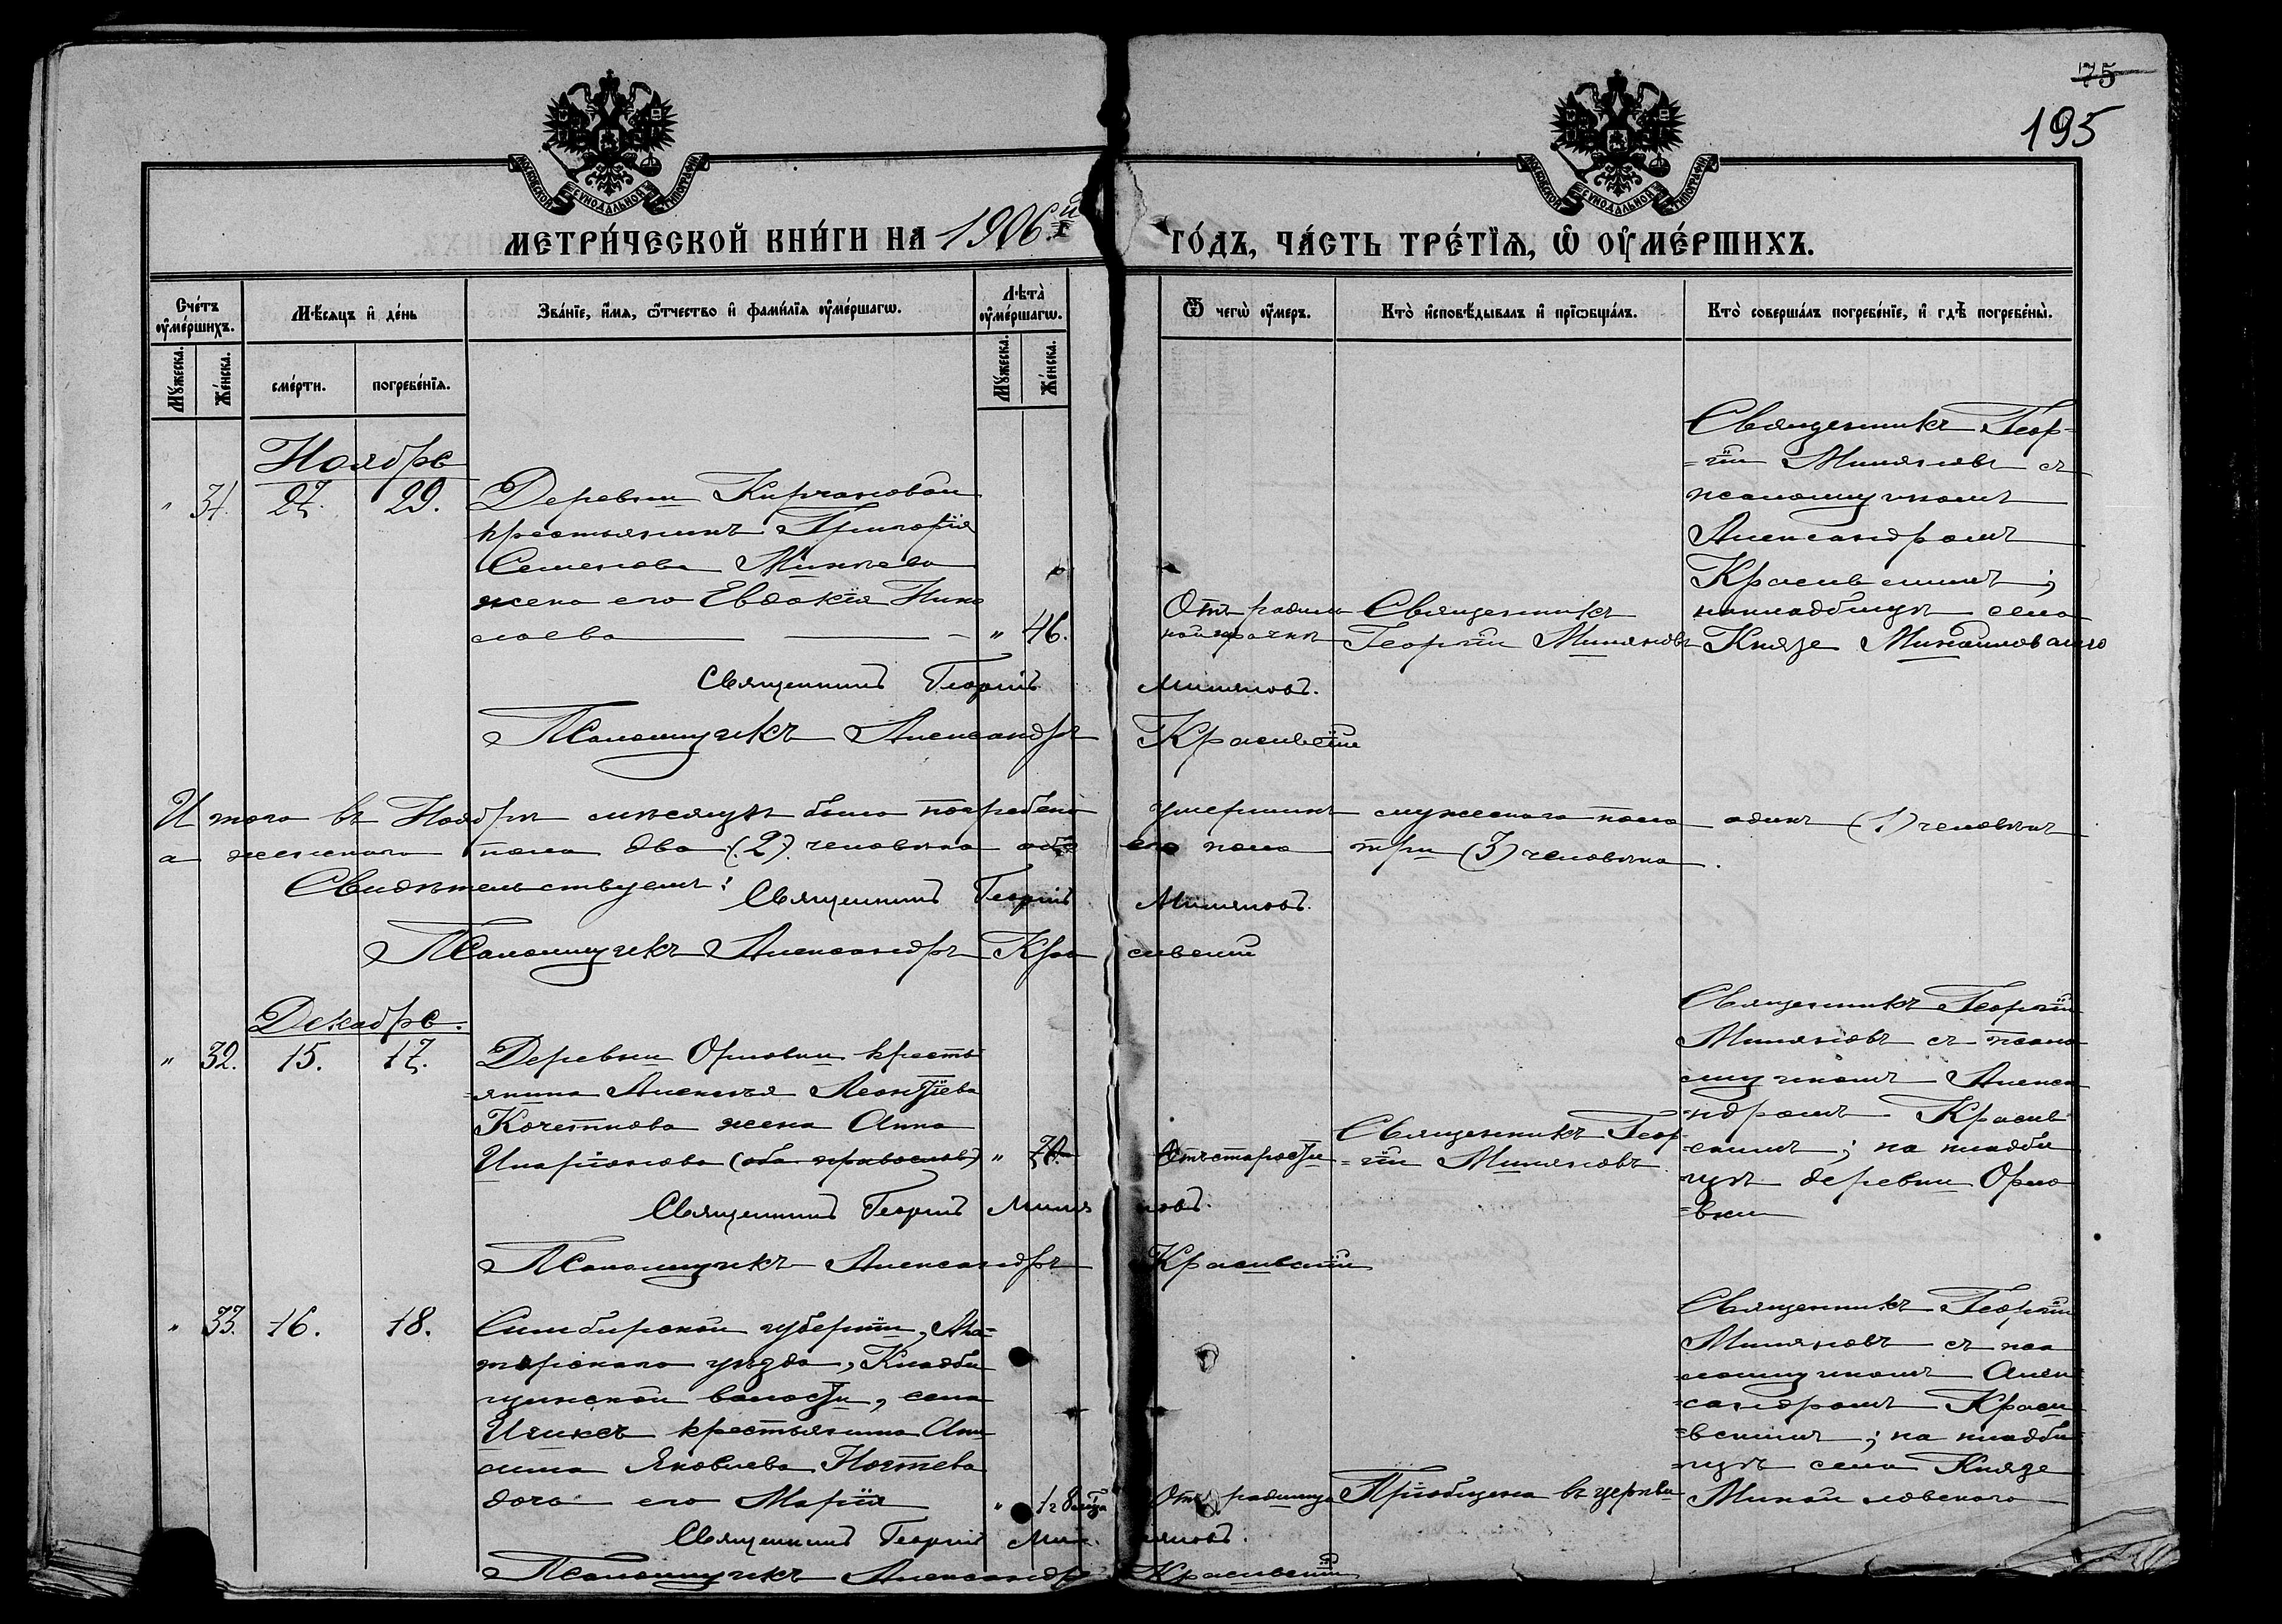 75
195
МОСКОВСКОЙ СѴНОДАЛЬНОЙ ТИПОГРАФІИ
МОСКОВСКОЙ СѴНОДАЛЬНОЙ ТИПОГРАФІИ
МЕТРИ́ЧЕСКОЙ КНИ́ГИ НА 1906.й ГО́ДЪ, ЧА́СТЬ ТРЕ́ТЇѦ, Ѽ ОУ҆МЕ́РШИХЪ.
Сче́тъ оу҆ме́ршихъ.
Мꙋ́жеска.
Же́нска.
Мѣ́сѧцъ и҆ де́нь
сме́рти.
погребе́нїѧ.
Зва́нїе, и҆́мѧ, ѻ҆́тчество и҆ фами́лїѧ оу҆ме́ршагѡ.
Лѣта̀ оу҆ме́ршагѡ.
Мꙋ́жеска.
Же́нска.
Ѿ чегѡ̀ оу҆́меръ.
Кто̀ и҆сповѣ́дывалъ и҆ прїѡбща́лъ.
Кто̀ соверша́лъ погребе́нїе, и҆ гдѣ̀ погребе́ны̀.
Ноябрь
" 31. 27. 29.
Деревни Кирчановой
крестьянинъ Григорія
Семенова
жена его Евдокія Нико
лаева " 46.
Отъ родиль
ной горячки
Священникъ
Георгій Миляновъ
Священникъ Геор-
=гій Миляновъ съ
псаломщикомъ
Александромъ
Красивскимъ;
на кладбищѣ села
Князе Михайловскаго
Священникъ Георгій Миляновъ.
Псаломщикъ Александръ Красивскій
Итого въ Ноябрѣ мѣсяцѣ было погребено умершихъ мужескаго пола одинъ (1) человѣкъ
а женскаго пола два (2) человѣка обо его пола три (3) человѣка.
Свидѣтельствуемъ: Священникъ Георгій Миляновъ.
Псаломщикъ Александръ Кра сивскій
Декабрь.
" 32. 15. 17.
Деревни Орловки кресть
=янина Алексѣя Леонтіева
Кочеткова жена Анна
Иларіонова (оба православ) " 70.
Отъ старости
Священникъ Геор
=гій Миляновъ
Священникъ Георгій
Миляновъ съ псало
мщикомъ Алекса
=ндромъ Красив
=скимъ; на кладби
щѣ деревни Орло
=вки
Священникъ Георгій Миля новъ.
Псаломщикъ Александръ Красивскій
" 33. 16. 18.
Симбирской губерніи, Ала=
тырскаго уѣзда, Кладби
щинской волости, села
крестьянина Они
сима Яковлева Ногтева
дочь его Марія " 1г 8 мѣс
Отъ родимца
Пріобщена въ церкви
Священникъ Георгій
Миляновъ съ пса
=ломщикомъ Алек=
=сандромъ Краси
=вскимъ; на кладби
=щѣ села Князе
Михайловскаго
Священникъ Георгій Ми ляновъ.
Псаломщикъ Александръ Красивскій